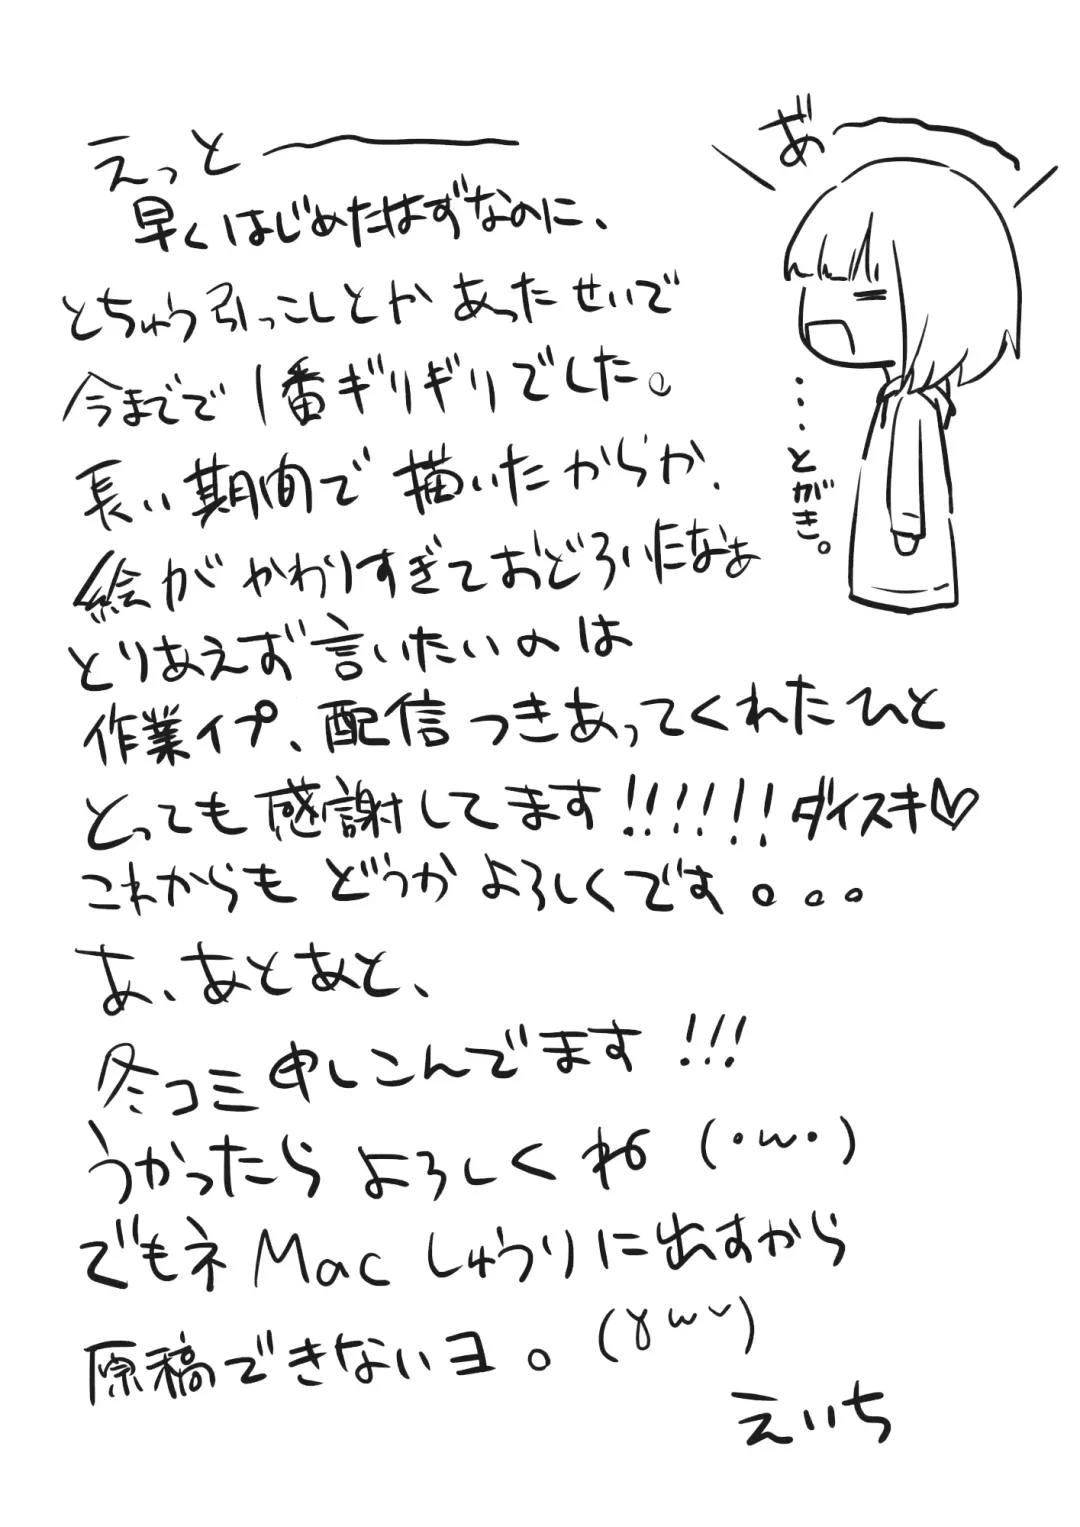 えっと〜
早くはじめたはずなのに、
とちゅう引っこしとかあったせいで
今までで1番ギリギリでした。
長い期間で描いたからか、
絵がかわりすぎておどろいたなぁ
とりあえず言いたいのは
作業イプ、配信つきあってくれたひと
とっても感謝してます!!!!!!ダイスキ♡
これからもどうかよろしくです。。。
あ、あとあと、
冬コミ申しこんでます!!!
うかったらよろしくね(・ω・)
でもネMacしゅうりに出すから
原稿できないヨ。(˘ω˘)
えいち
あ゛〜
…とがき。